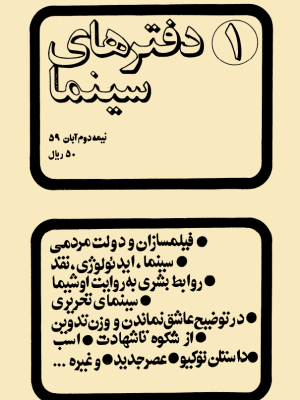 دفترهای ۱
سینما
نیمه دوم آبان ۵۹
۵۰ ریال
● فیلمسازان و دولت مردمی
● سینما، ایدئولوژی، نقد
● روابط بشری به روایت اوشیما
● سینمای تحریری
● در توضیح عاشق نماندن و وزن تدوین
● از شکوه تا شهادت ● اسب
● داستان توکیو ● عصر جدید ● و غیره ...